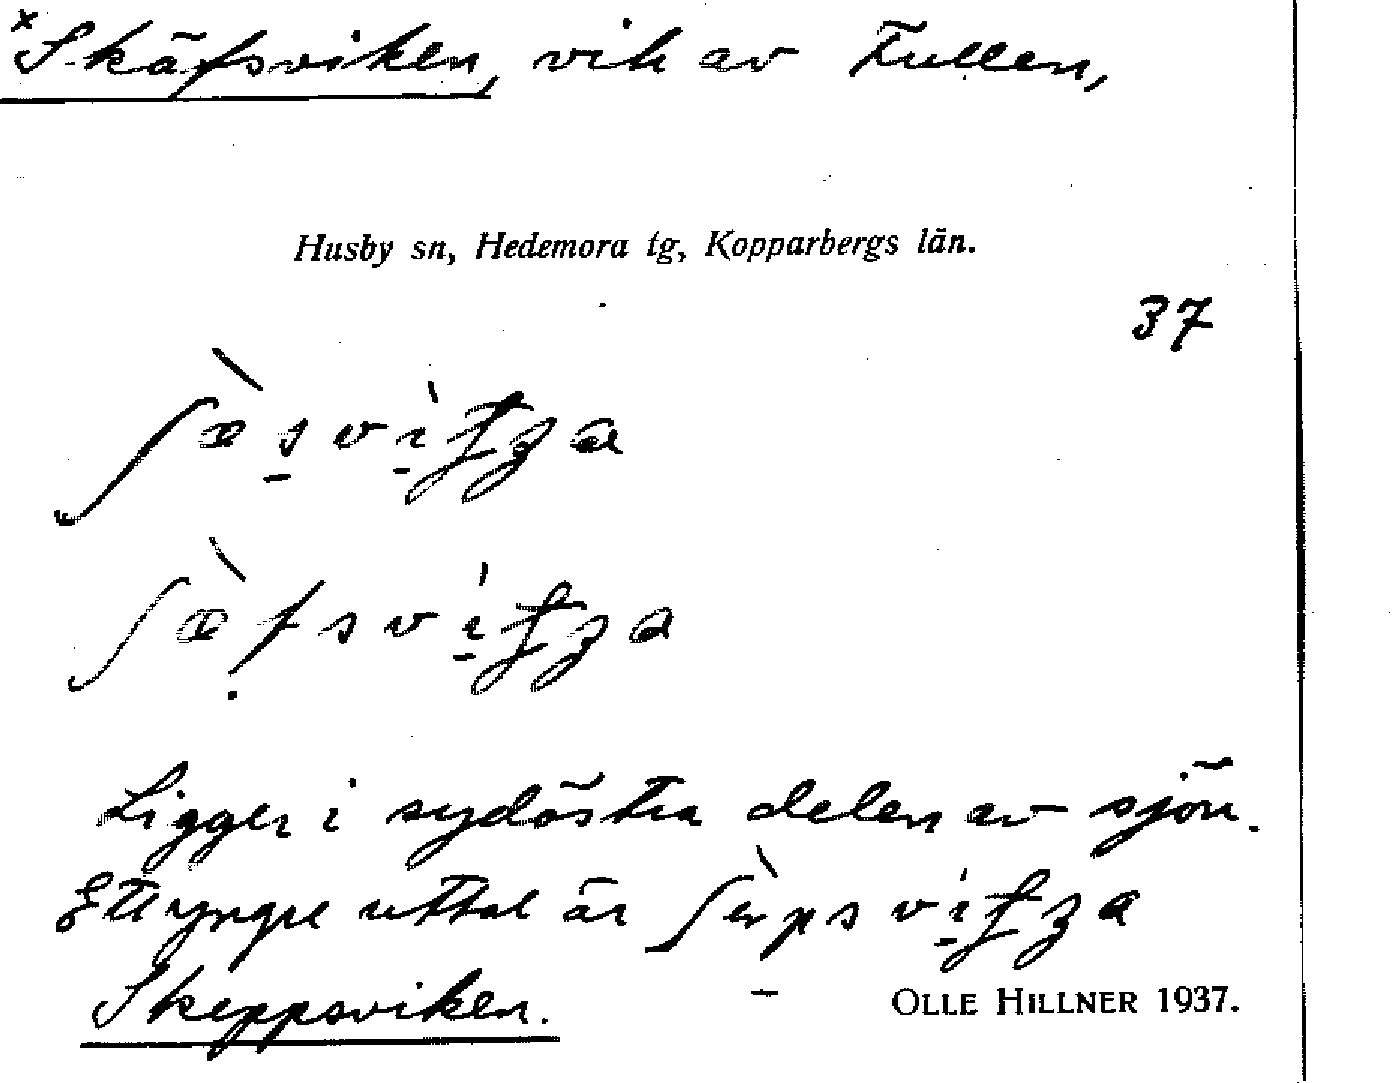 ×Skäfsviken, vik av Fullen,
Husby sn, Hedemora tg, Kopparbergs län.
37
Ligger i sydöstra delen av sjön.
Ett yngre uttal är
Skeppsviken.
OLLE HILLNER 1937.